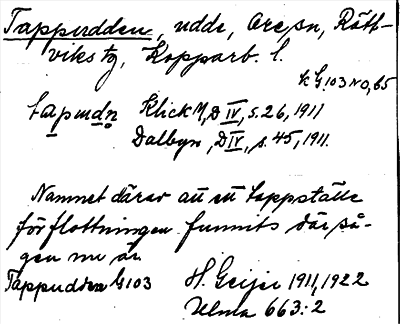 Tappudden, udde, Ore sn, Rätt-
viks tg, Kopparb. l.
k G103 NO, 65
tapudn Klick M, D IV, s. 26, 1911
Dalbyn, D IV, s. 45, 1911.
Namnet därav att ett tappställe
för flottningen funnits där så-
gen nu är
Tappudden G103 H. Geijer 1911, 1922
Ulma 663:2